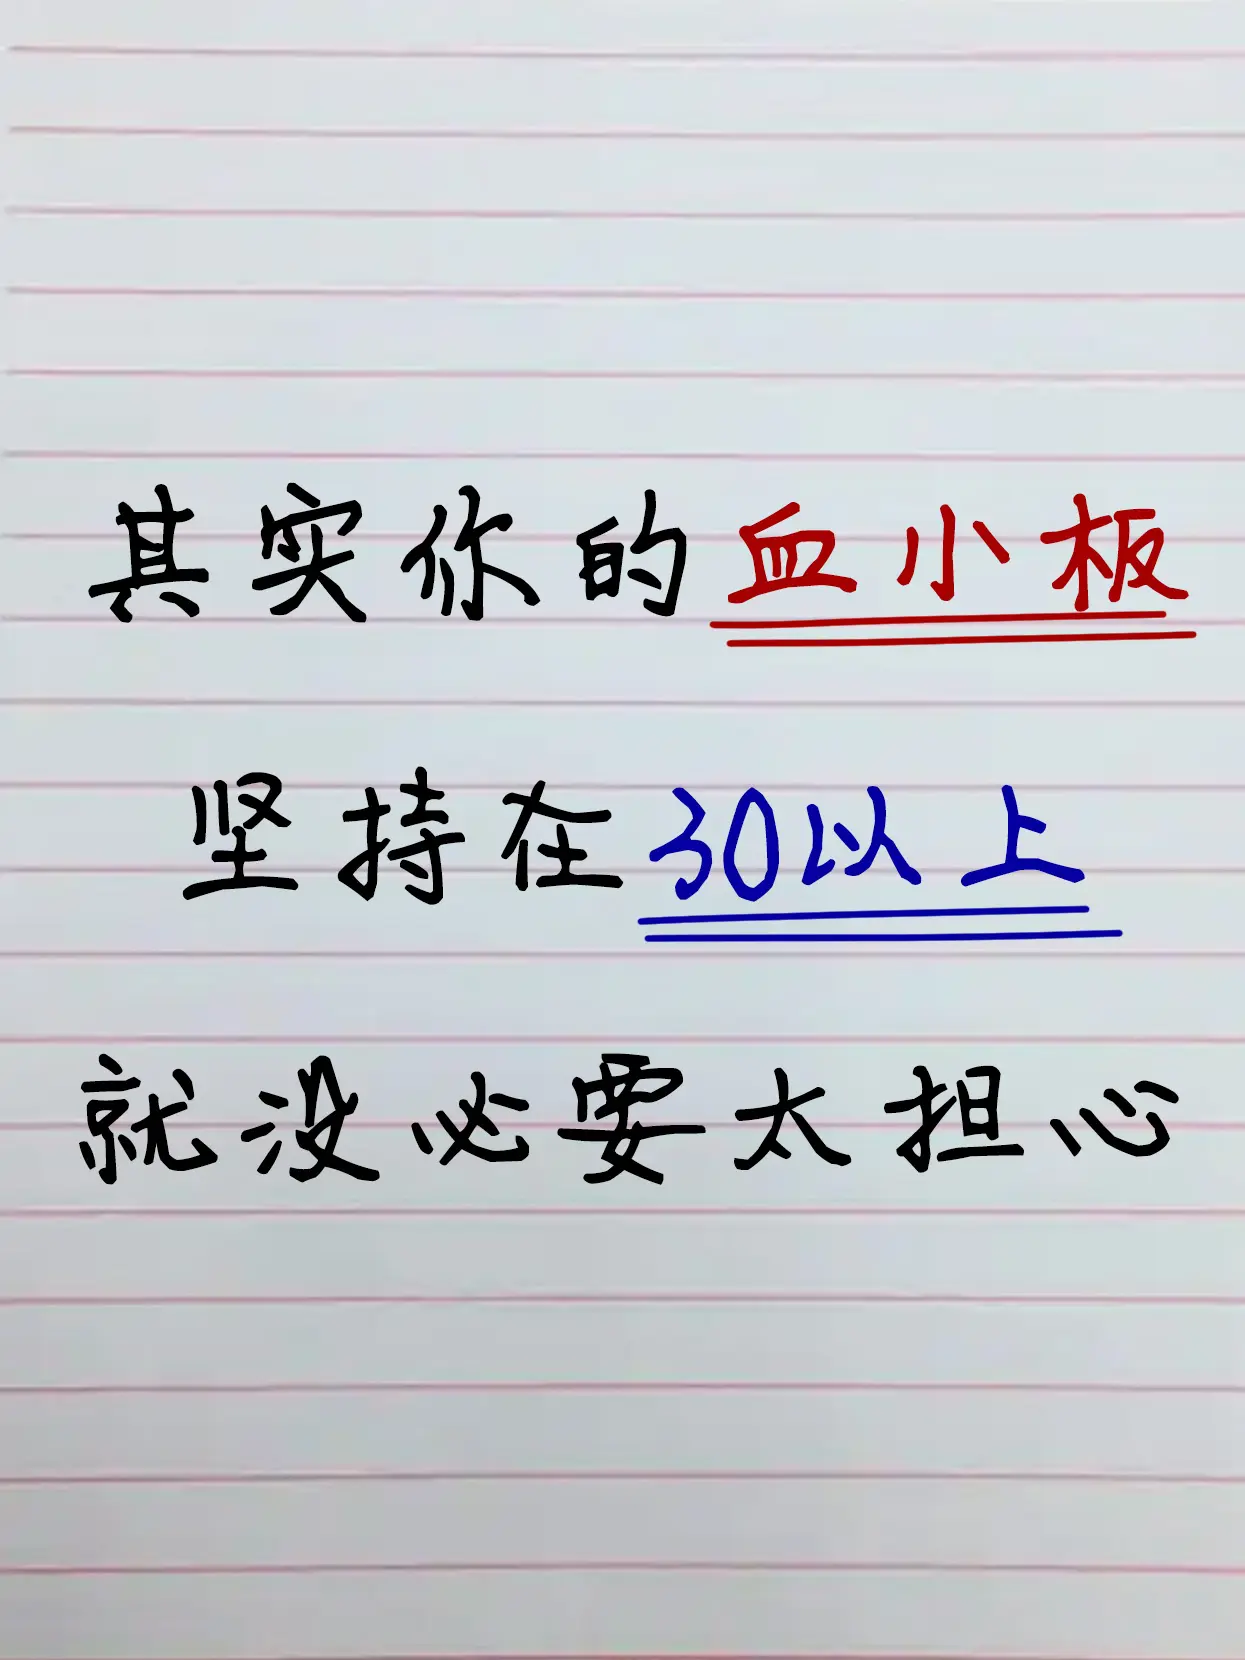 其实你的血小板
坚持在30以上
就没必要太担心